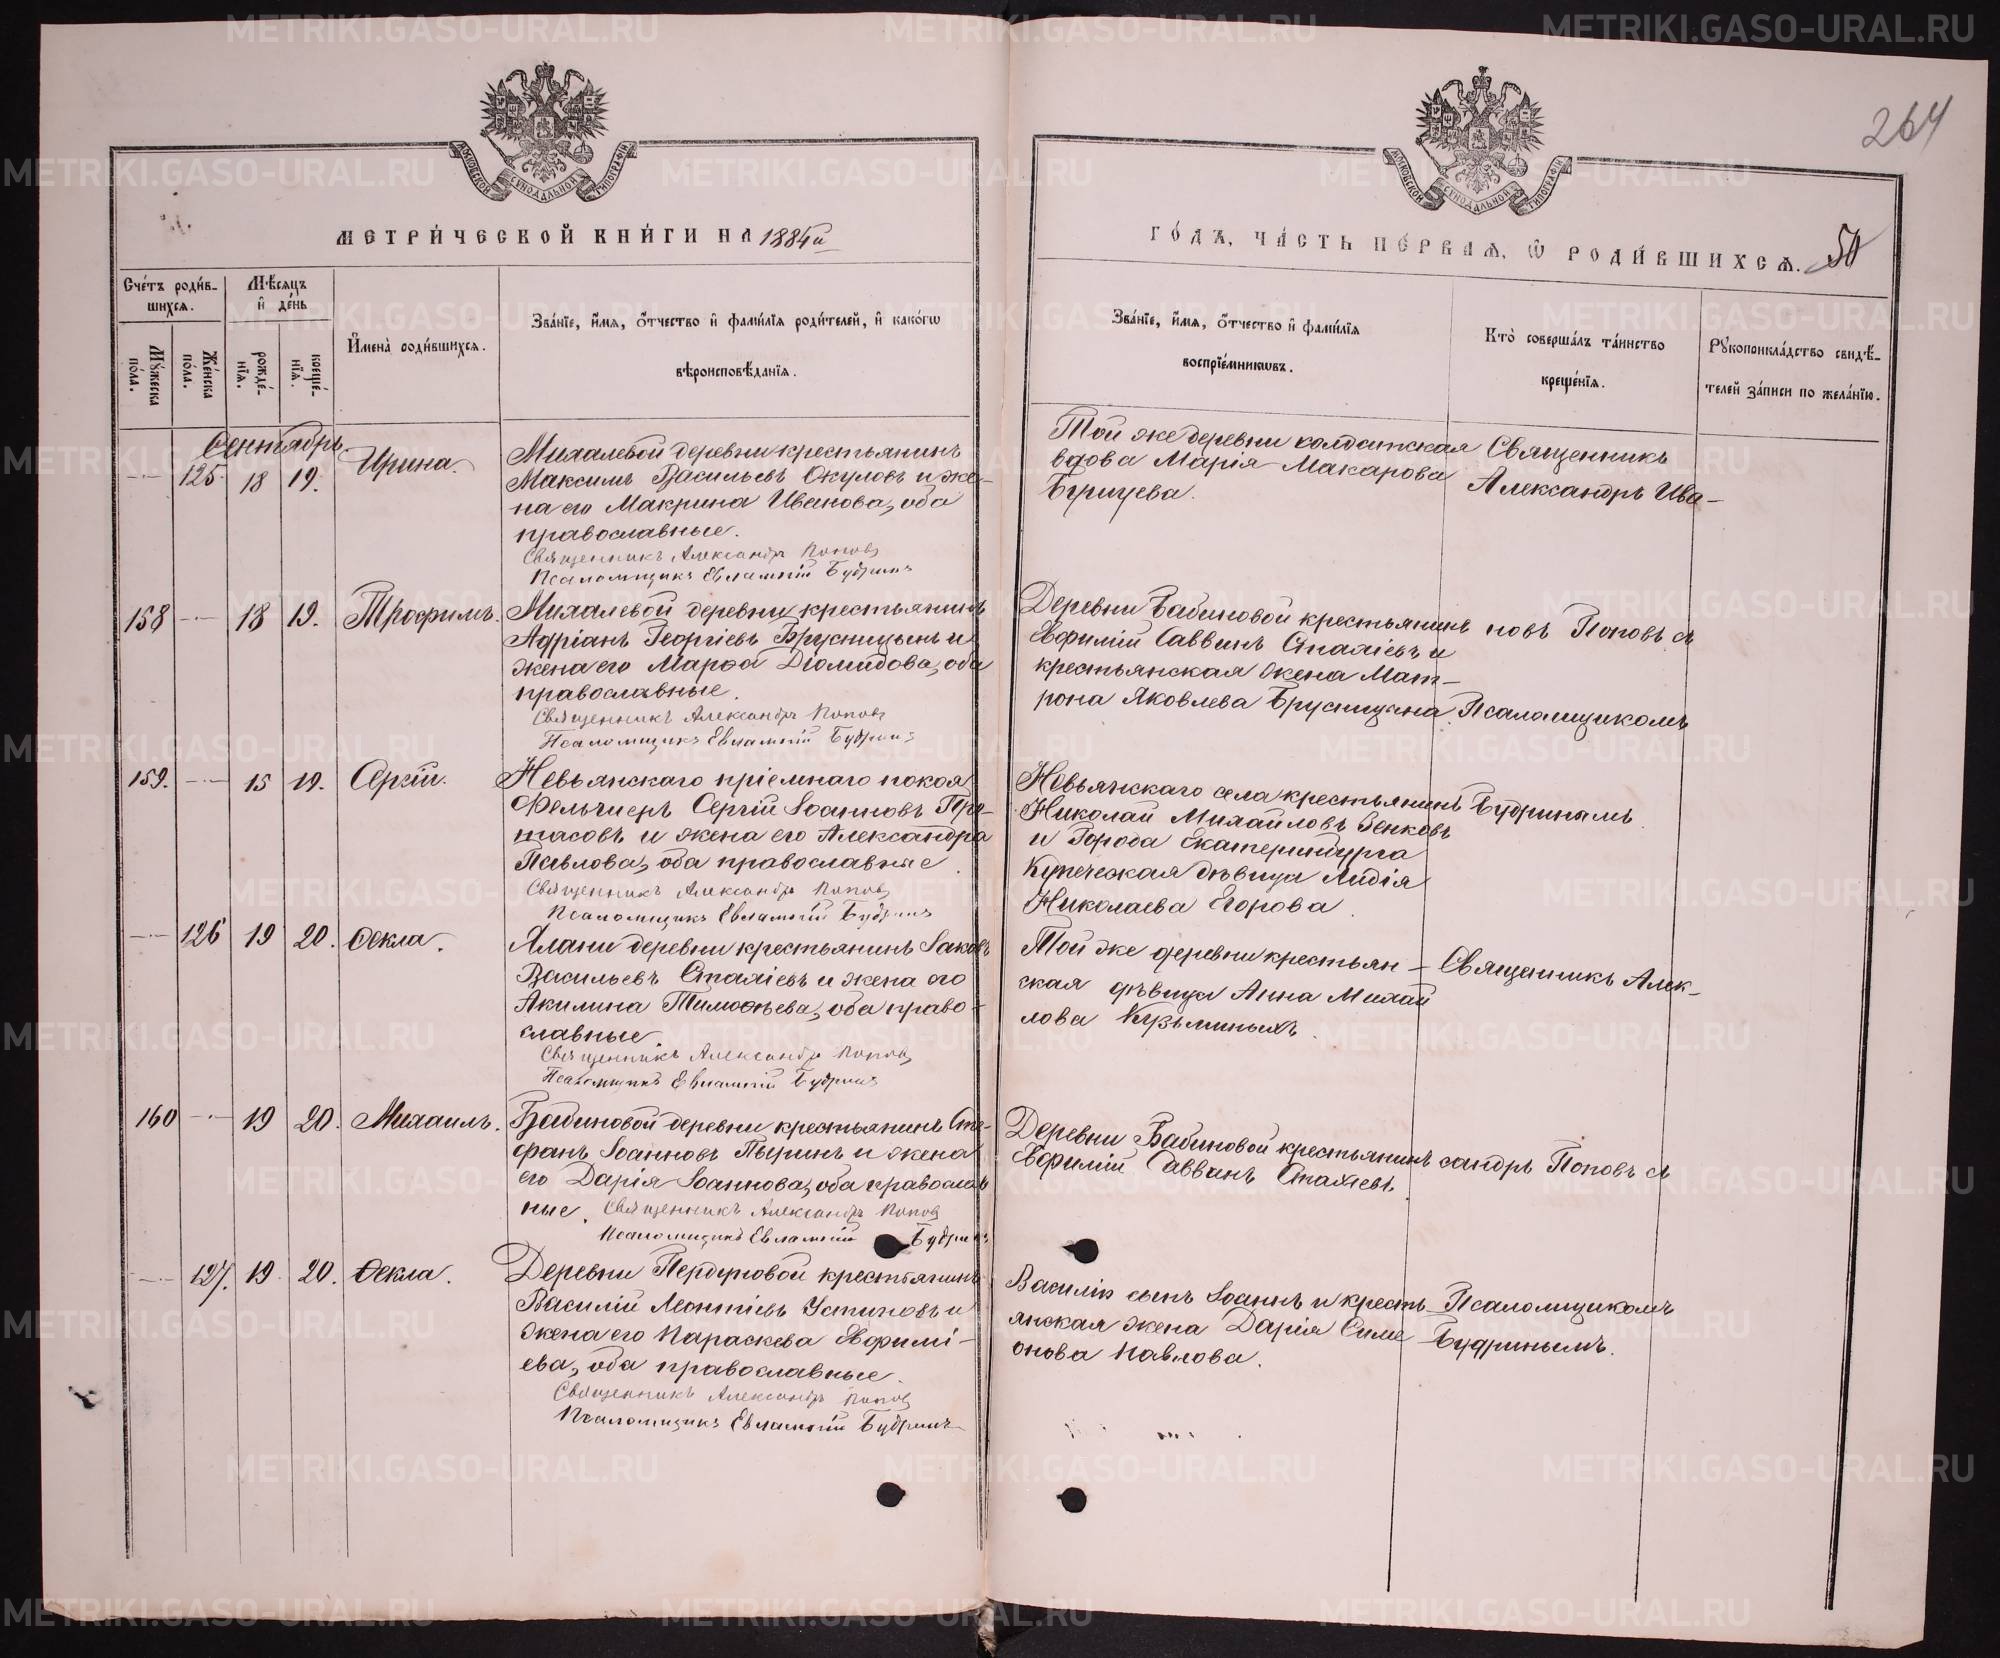 264
МОСКОВСКОЙ СУНОДАЛЬНОЙ ТИПОГРАФІИ
МОСКОВСКОЙ СУНОДАЛЬНОЙ ТИПОГРАФІИ
МЕТРИ́ЧЕСКОЙ КНИ́ГИ НА 1884й
ГО́ДЪ, ЧА́СТЬ ПЕ́РВАЯ, Ѡ РОДИ́ВШИХСЯ. 50
Сче́тъ роди́в-
шихся.
Мѣ́сяцъ
и де́нь
Имена̀ родившихся.
Зва́нїе, и́мя, ѻ́тчество и фами́лїя роди́телей, и како́гѡ
вѣроисповѣ́данїя.
Му́жеска по́ла.
Же́нска по́ла.
рожде́-
нїя.
креще́-
нїя.
Зва́нїе, и́мя, ѻ́тчество и фами́лїя
воспрїе́мникѡвъ.
Кто̀ соверша́лъ та́инство
креще́нїя.
Рукоприкла́дство свидѣ́-
телей за́писи по жела́нїю.
Сентябрь.
125 18 19. Ирина.
Михалевой деревни крестьянинъ
Максимъ Васильевъ Окуловъ и же-
на его Макрина Иванова, оба
православные.
Священникъ Александръ Поповъ
Псаломщикъ Евлампій Будринъ
Той же деревни солдатская
вдова Марія Макарова
Священникъ
Александръ Ива-
158 18 19. Трофимъ.
Михалевой деревни крестьянинъ
Адріанъ Георгіевъ Брусницынъ и
жена его Марфа Діомидова, оба
православные.
Священникъ Александръ Поповъ
Псаломщикъ Евлампій Будринъ
Деревни Бабиновой крестьянинъ
Евфимій Саввинъ Стахіевъ и
крестьянская жена Мат-
рона Яковлева Брусницына.
новъ Поповъ съ
Псаломщикомъ
159. 15 19. Сергій.
Невьянскаго пріемнаго покоя
Фельдшеръ Сергій Іоанновъ Про-
тасовъ и жена его Александра
Павлова, оба православные.
Священникъ Александръ Поповъ
Псаломщикъ Евлампій Будринъ
Невьянскаго села крестьянинъ
Николай Михайловъ Зенковъ
и Города Екатеринбурга
Купеческая дѣвица Лидія
Николаева Егорова.
Будринымъ.
126 19 20. Ѳекла.
Ялани деревни крестьянинъ Іаковъ
Васильевъ Стахіевъ и жена его
Акилина Тимоѳеева, оба право-
славные.
Священникъ Александръ Поповъ
Псаломщикъ Евлампій Будринъ
Той же деревни крестьян-
ская дѣвица Анна Михай
лова Кузьминыхъ.
Священникъ Алек-
160 19 20. Михаилъ.
Бабиновой деревни крестьянинъ Сте-
фанъ Іоанновъ Пыринъ и жена
его Дарія Іоаннова, оба православ
ные. Священникъ Александръ Поповъ
Псаломщикъ Евлампій Будринъ
Деревни Бабиновой крестьянинъ
Евфимій Саввинъ Стахіевъ.
сандръ Поповъ съ
127. 19 20. Ѳекла.
Деревни Пердуновой крестьянинъ
Василій Леонтіевъ Устиновъ и
жена его Параскева Евфимі-
ева, оба православные.
Священникъ Александръ Поповъ
Псаломщикъ Евлампій Будринъ
Василія сынъ Іоаннъ и кресть-
янская жена Дарія Симе
онова Павлова.
Псаломщикомъ
Будринымъ.
METRIKI.GASO-URAL.RU